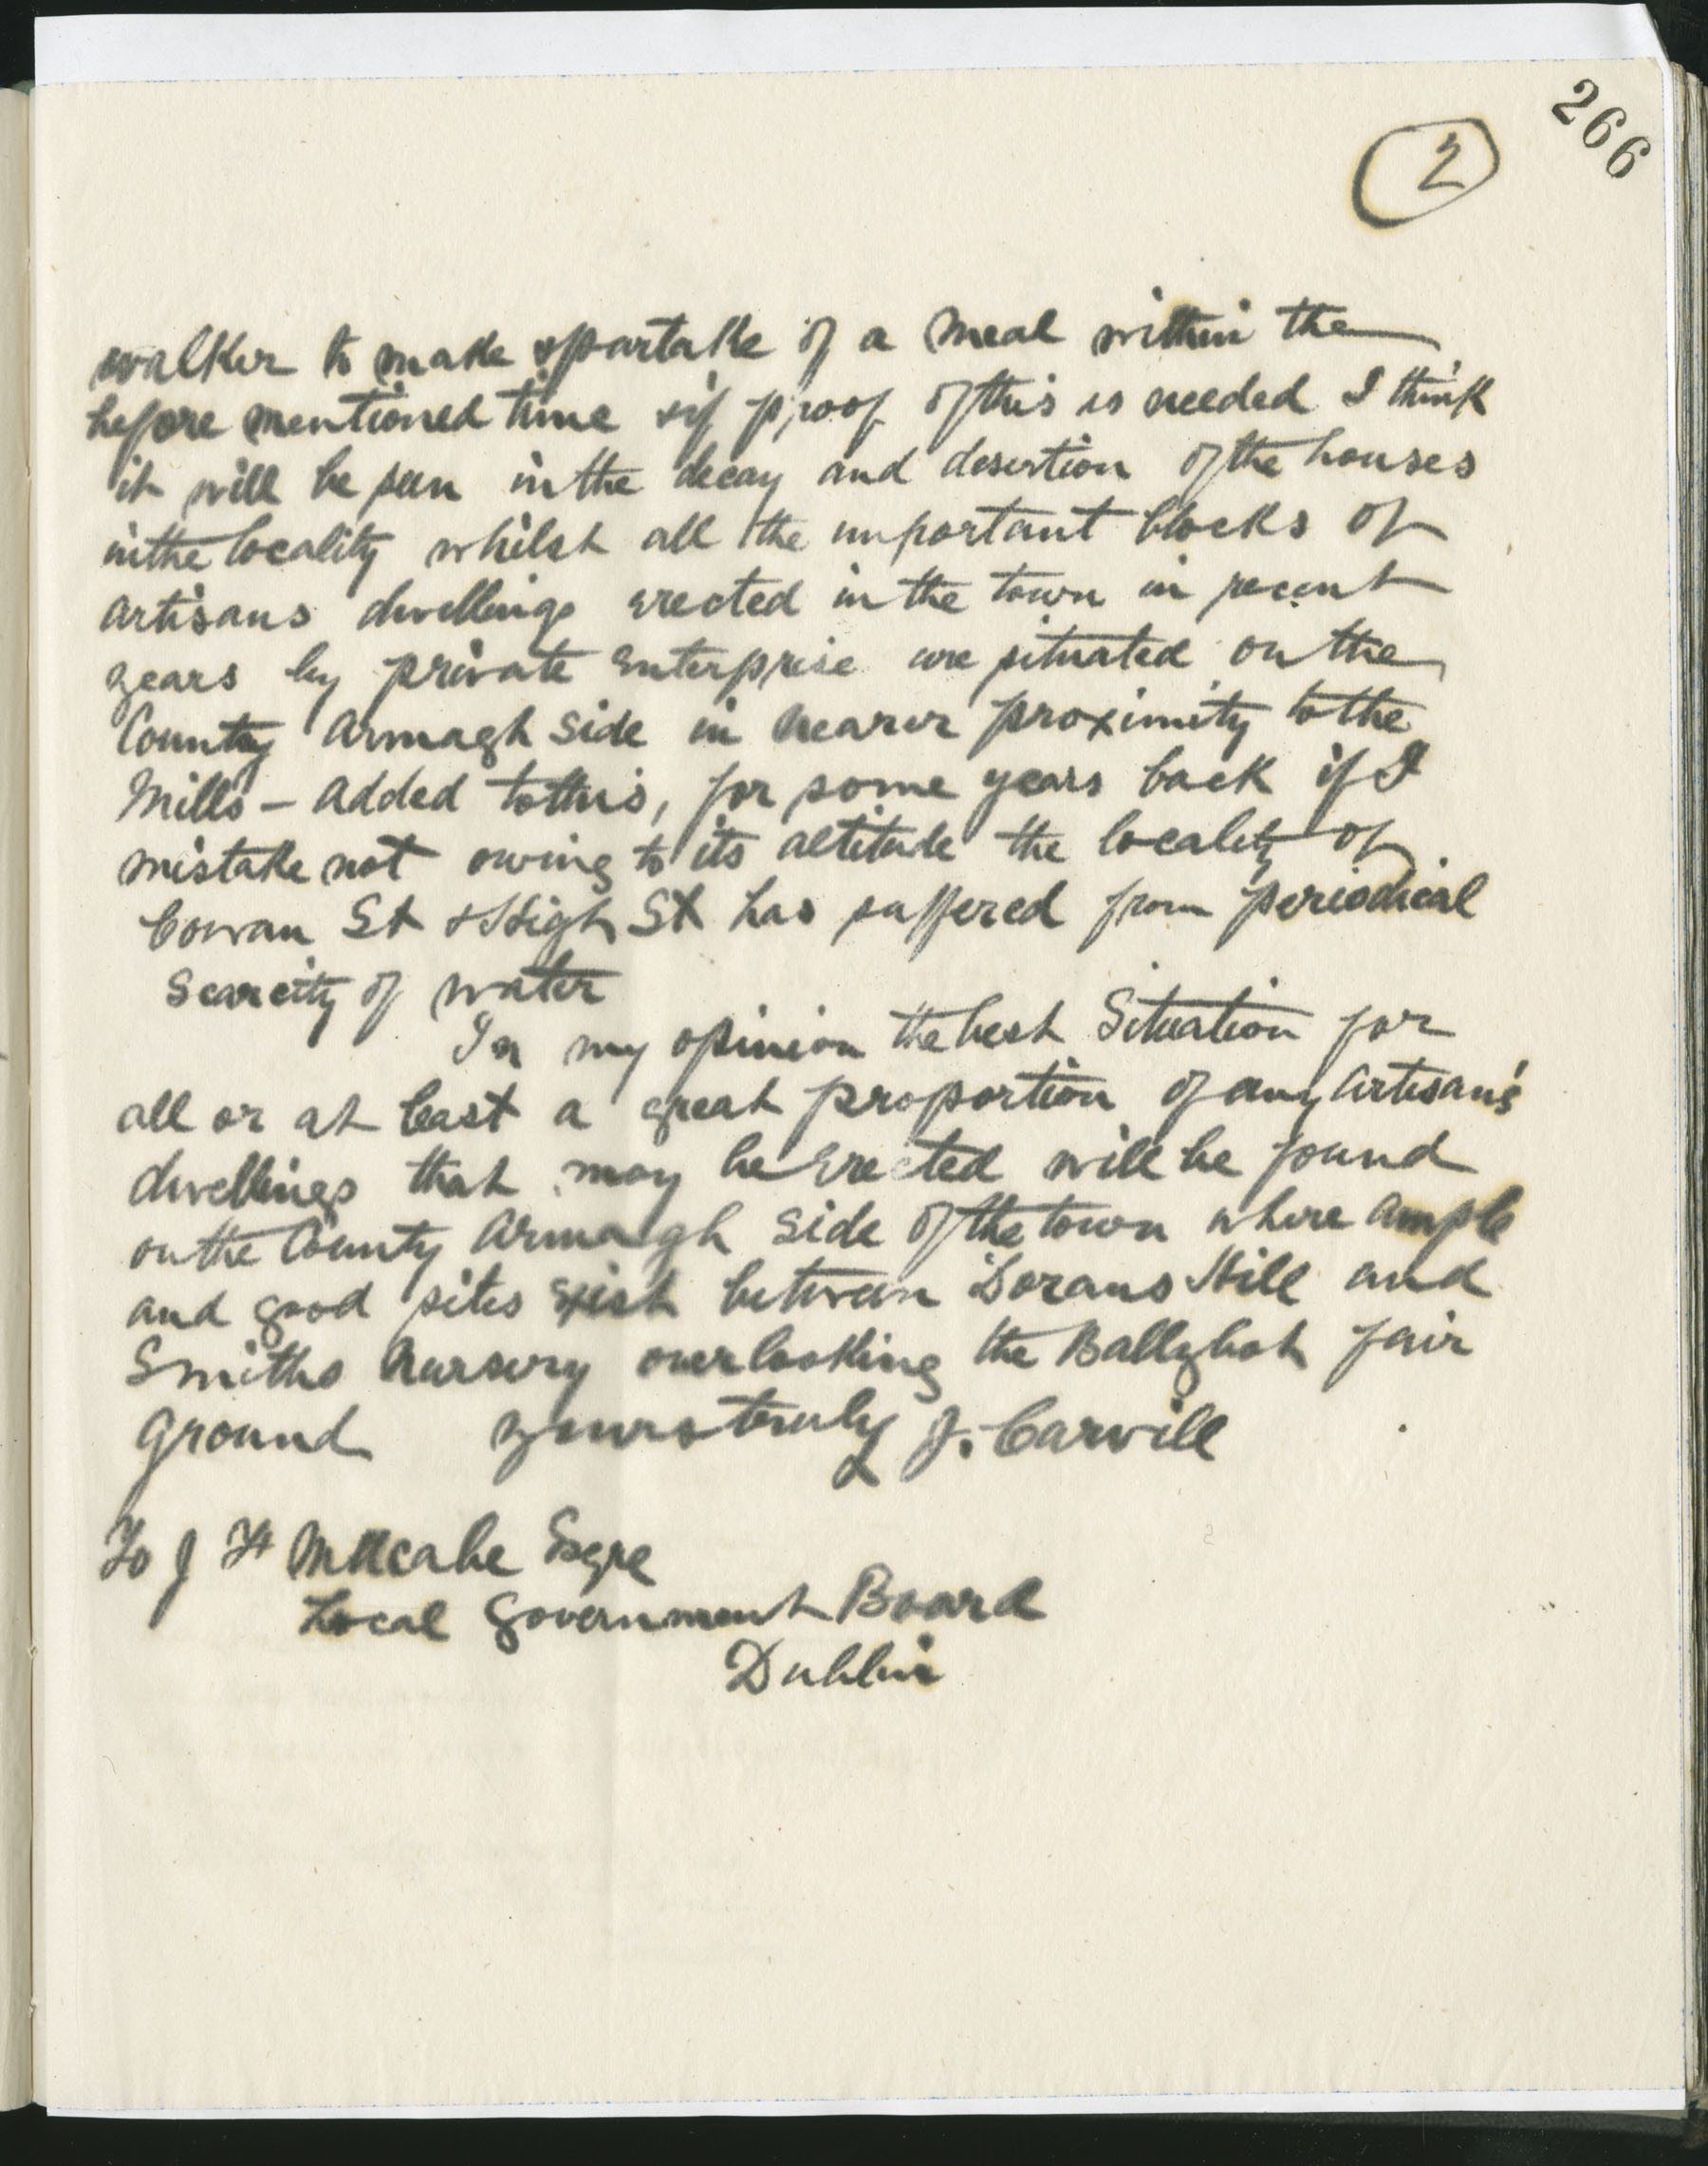 266
2
walker to make & partake of a meal within the
before mentioned time & if proof of this is needed I think
it will be seen in the decay and desertion of the houses
in the locality whilst all the important blocks of
artisans dwellings erected in the town in recent
years by private enterprise are situated on the
County Armagh side in nearer proximity to the
Mills - Added to this, for some years back if I
mistake not owing to its altitude the locality of
Cowan St & High St has suffered from periodical
scarcity of water
In my opinion the best situation for
all or at least a great proportion of any Artisan's
dwellings that may be erected will be found
on the County Armagh side of the town where ample
and good sites exist between Dorans Hill and
Smiths Nursery overlooking the Ballybot fair
ground yours truly J. Carvill
To J H Mccabe Esqre
Local Government Board
Dublin